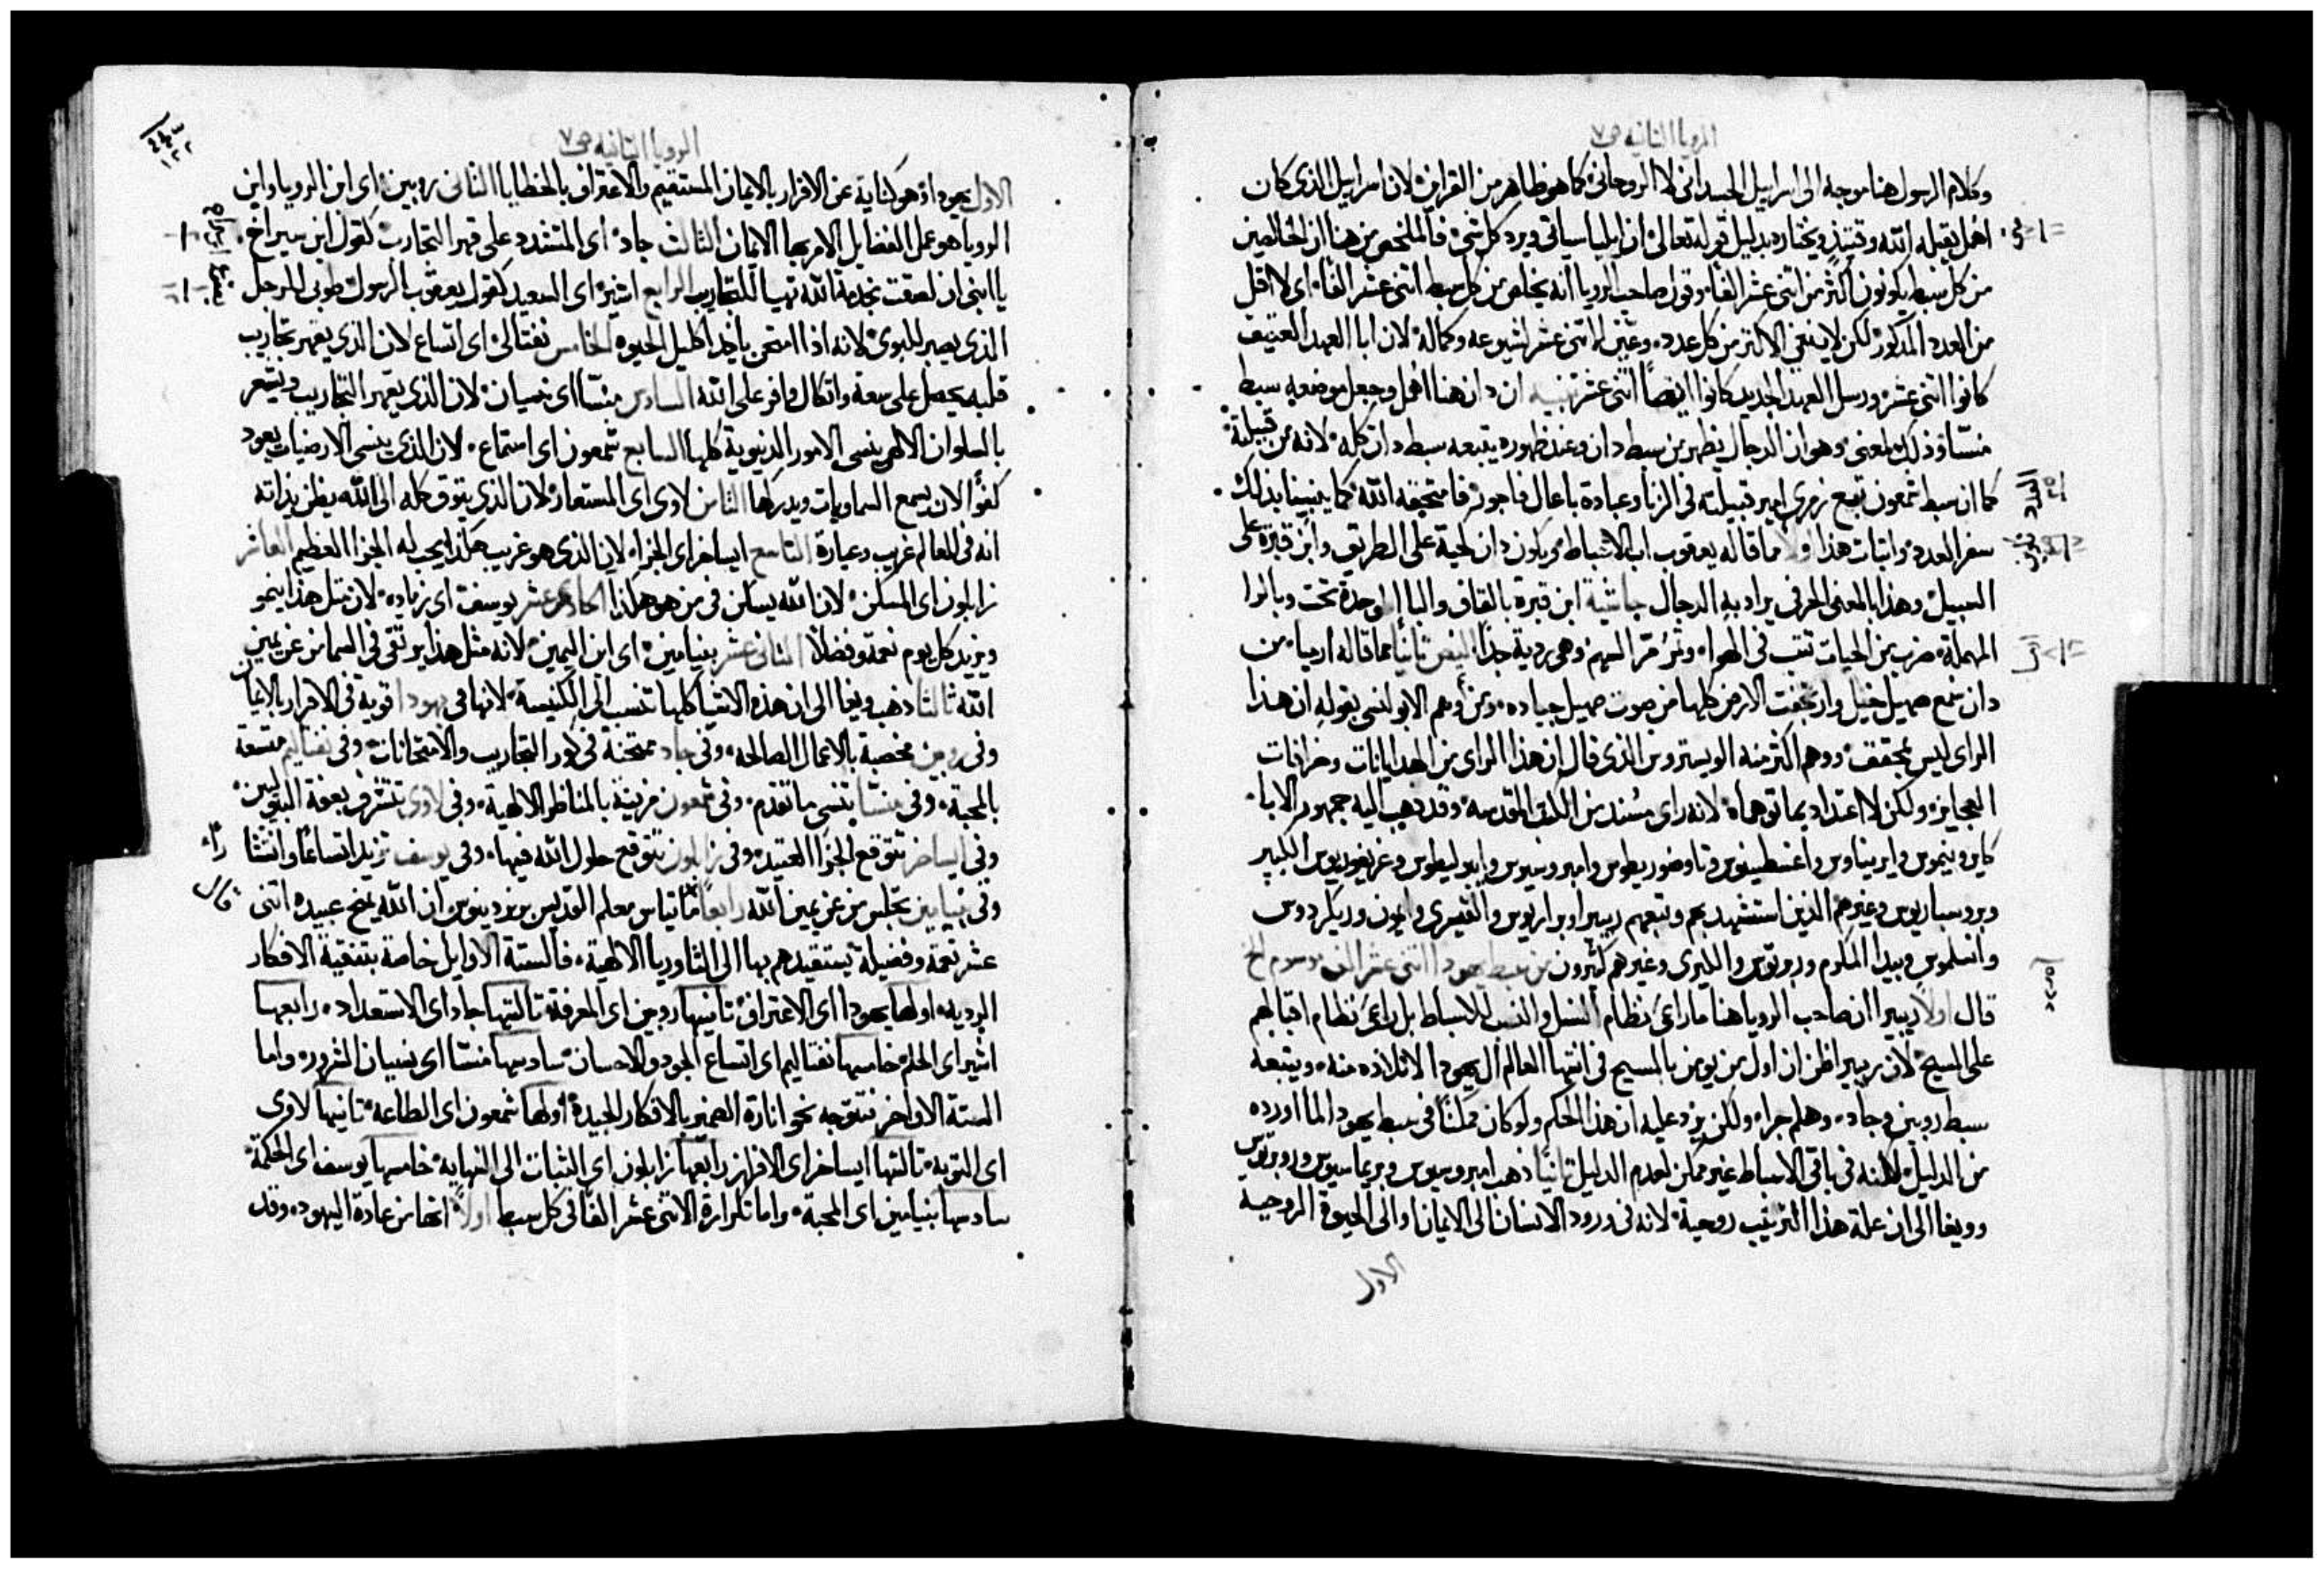 الرويا الثانيه ص٧
وكلام الرسول هنا موجه الى اسراييل الجسداني لا الروحاني كما هو ظاهر من القراين لان اسراييل الذي كان
اهل يقبله الله وقتيذٍ ويختاره بدليل قوله تعالى ان ايليا سياتي ويرد كل شي فالملخص من هنا ان الخالصين
من كل سبط يكونون اكثر من اثني عشر الفا وقول صاحب الرويا انه يخلص من كل سبط اثني عشر الفا اي لا اقل
من العدد المذكور لكن لا ينفي الاكثر من كل عدده وعين الاثني عشر لشيوعه وكماله لان ابا العهد العتيق
كانوا اثني عشر ورسل العهد الجديد كانوا ايضاً اثني عشر تنبيه ان دان هنا اهمل وجعل موضعه سبط
منسّا وذلك لمعنى وهو ان الدجال يظهر من سبط دان وعند ظهوره يتبعه سبط دان كله لانه من قبيلته
كما ان سبط شمعون تبع زمري امير قبيلته في الزنا وعبادة باعال فاجور فامتحقه الله كما ينبينا بذلك
سفر العدد واثبات هذا اولاً ما قاله يعقوب اب الاسباط ويكون دان كحية على الطريق وابن قترة على
السبيل وهذا بالمعنى الحرفي يراد به الدجال حاشية ابن قترة بالقاف والبا الموحدة تحت وبالرا
المهملة ضرب من الحيات تثب في الهوا وتمر مرّ السهم وهي ردية جداً ثانياً مما قاله ارميا من
دان سمع صهيل خيل وارتجفت الارض كلها من صوت صهيل جياده ومن وهم الابولنسي بقوله ان هذا
الراي ليس بمحقق ووهم اكثر منه الويستروس الذي قال ان هذا الراي من الهدايانات وخرافات
العجايز ولكن لا اعتداد بما توهماه لانه راي مسند من الكتب المقدسه وقد ذهب اليه جمهور الابا
كايرونيموس وايريناوس واغسطينوس وتاوضوريطوس وامبروسيوس وايبوليطوس وغريغوريوس الكبير
وبروسباريوس وغيرهم الذين استشهد بهم وتبعهم ريبيرا وبراريوس والقيسري وايون وريكردوس
وانسلموس وبيدا المكرم وروبرتوس والليري وغيرهم كثيرون من سبط يهودا اثني عشر الف موسوم الخ
قال اولاً ريبيرا ان صاحب الرويا هنا ما راعى نظام النسل والنسب للاسباط بل راعى نظام اقبالهم
على المسيح لان ريبيرا ظن ان اول من يومن بالمسيح في انتها العالم ال يهودا لاتلاده منه ويتبعه
سبط روبين وجاد وهلم جرا ولكن يرد عليه ان هذا الحكم ولو كان ممكناً في سبط يهودا لما اورده
من الدليل لاكنه في باقي الاسباط غير ممكن لعدم الدليل ثانياً ذهب امبروسيوس وبريماسيوس وروبرتوس
وويغا الى ان علة هذا الترتيب روحية لانه في ورود الانسان الى الايمان او الى الحيوة الروحية
الاول
الرويا الثانيه ص٧
الاول يهودا وهو كناية عن الاقرار بالايمان المستقيم والاعتراف بالخطايا الثاني روبين اي ابن الرويا وابن
الرويا هو عمل الفضايل الامر بها الايمان الثالث جاد اي المتشدد على قهر التجارب كقول ابن سيراخ
يا ابني ان لصقت بخدمة الله تهيا للتجارب الرابع اشير اي السعيد كقول يعقوب الرسول طوبى للرجل
الذي يصبر للبلوى لانه اذا امتحن ياخذ اكليل الحيوه الخامس نفتالي اي اتساع لان الذي يقهر تجاريب
قلبه يحصل على سعة واتكال وافر على الله السادس منسّا اي نسيان لان الذي يقهر التجاريب ويشعر
بالسلوان الالهي ينسى الامور الدنيوية كلها السابع شمعون اي استماع لان الذي ينسى الارضيات يعود
كفواً لان يسمع السماويات ويدركها الثامن لاوي اي المستعار لان الذي يتوق كله الى الله يظن بذاته
انه في العالم غريب وعيارة التاسع ايساخر اي الجزا لان الذي هو غريب هكذا يجب له الجزا العظيم العاشر
زابلون اي المسكن لان الله يسكن في من هو هكذا الحادي عشر يوسف اي زياده لان مثل هذا ينمو
ويزيد كل يوم نعمة وفضلاً الثاني عشر بنيامين اي ابن اليمين لانه مثل هذا يرتقي في السما من عن يمين
الله ثالثاً ذهب ويغا الى ان هذه الاشيا كلها تنسب الى الكنيسة لانها في يهودا قوية في الاقرار بالايمان
وفي روبين مخصبة بالاعمال الصالحه وفي جاد ممتحنة في كور التجاريب والامتحانات وفي نفتاليم متسعة
بالمحبة وفي منسّا تنسى ما تقدم وفي شمعون مزينة بالمناظر الالهية وفي لاوي تتشرف بعفة البتوليين
وفي ايساخر تتوقع الجزا العتيد وفي زابلون تتوقع حلول الله فيها وفي يوسف تزيد اتساعاً وانتشاراً
وفي بنيامين تجلس من عن يمين الله رابعاً قال ماتياس معلم القديس برندينوس ان الله يمنح عبيده اثني
عشر نعمة وفضيلة يستقيدهم بها الى الثاوريا الالهية فالستة الاوايل خاصة بتنقية الافكار
الرديه اولها يهودا اي الاعتراف ثانيها روبين اي المعرفة ثالثها جاد اي الاستعداد رابعها
اشير اي الحلم خامسها نفتاليم اي اتساع الجود والاحسان سادسها منسّا اي نسيان الشرور واما
الستة الاواخر فتتوجه نحو انارة الضمير بالافكار الجيدة اولها شمعون اي الطاعة ثانيها لاوي
اي التوبه ثالثها ايساخر اي الافراز رابعها زابلون اي الثبات الى النهايه خامسها يوسف اي الحكمة
سادسها بنيامين اي المحبة واما تكرارة الاثني عشر الفاً في كل سبط اولاً انها من عادة اليهود وقد